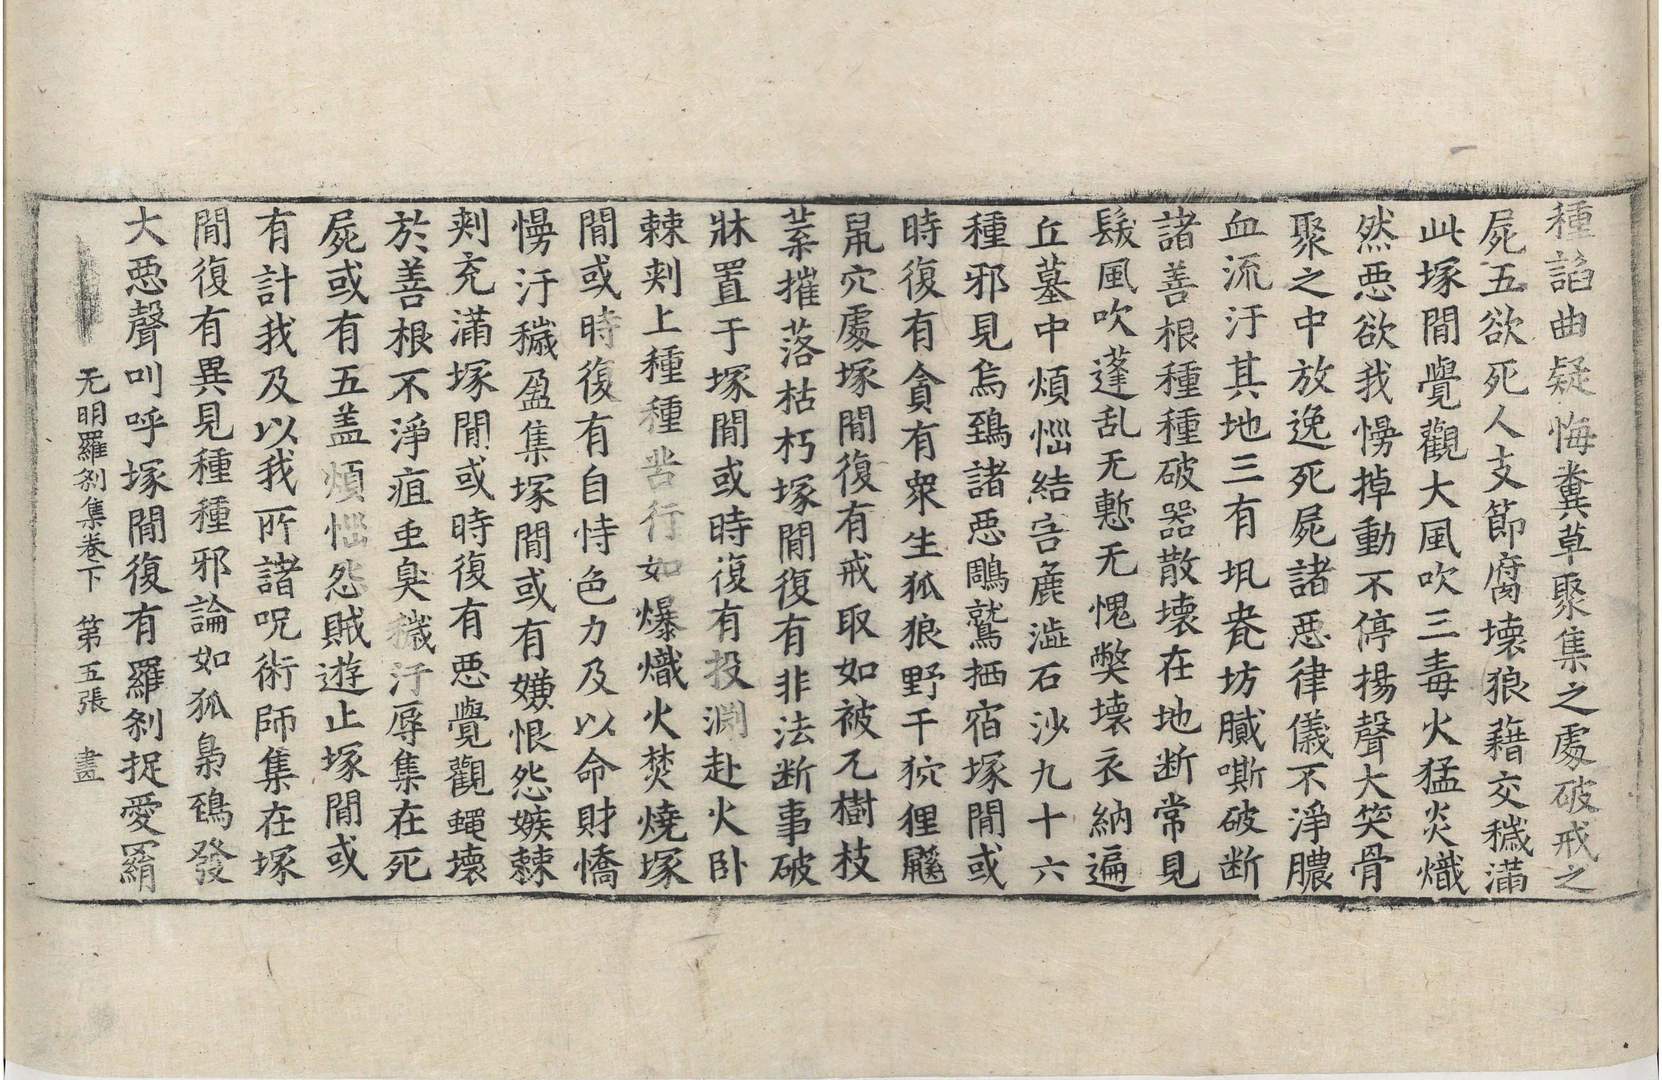 種諂曲疑悔糞草聚集之處破戒之
屍五欲死人支節腐壞狼藉交穢滿
此塚間覺觀大風吹三毒火猛炎熾
然惡欲我慢掉動不停揚聲大笑骨
聚之中放逸死屍諸惡律儀不淨膿
血流汙其地三有坑瓮坊膩嘶破断
諸善根種種破器散壞在地断常見
髮風吹蓬乱无慙无愧弊壞衣納遍
丘墓中煩惱結害麁澁石沙九十六
種邪見烏鵄諸惡鵰鷲栖宿塚間或
時復有貪有衆生狐狼野干狖狸鼷
鼠穴處塚間復有戒取如被兀樹枝
葉摧落枯朽塚間復有非法断事破
牀置于塚間或時復有投渊赴火卧
棘刾上種種苦行如爆熾火焚燒塚
間或時復有自恃色力及以命財憍
慢汙穢盈集塚間或有嫌恨怨嫉棘
刾充滿塚間或時復有惡覺觀蠅壞
於善根不淨疽虫臭穢汙辱集在死
屍或有五盖煩惱怨賊遊止塚間或
有計我及以我所諸呪術師集在塚
間復有異見種種邪論如狐梟鵄發
大惡聲叫呼塚間復有羅刹捉愛羂
无明羅刹集卷下 第五張 畫